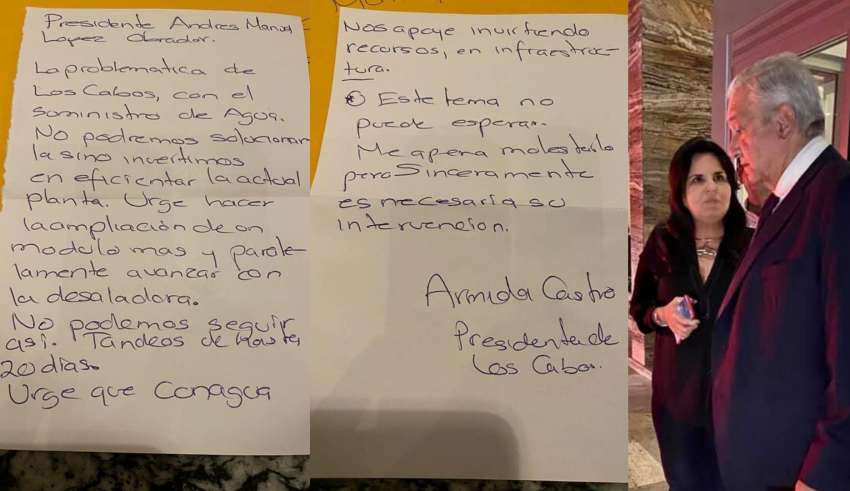 Presidente Andres Manuel
Lopez Obrador.
La problematica de
Los Cabos, con el
suministro de Agua.
No podremos solucionar
la sino invertimos
en eficientar la actual
planta. Urge hacer
la ampliación de un
modulo mas y parale-
lamente avanzar con
la desaladora.
No podemos seguir
asi. Tandeos de hasta
20 dias.
Urge que Conagua
Nos apoye invirtiendo
recursos, en infraestruc-
tura.
Este tema no
puede esperar.
Me apena molestarlo
pero Sinceramente
es necesaria su
intervencion.
Armida Castro
Presidenta de
Los Cabos.